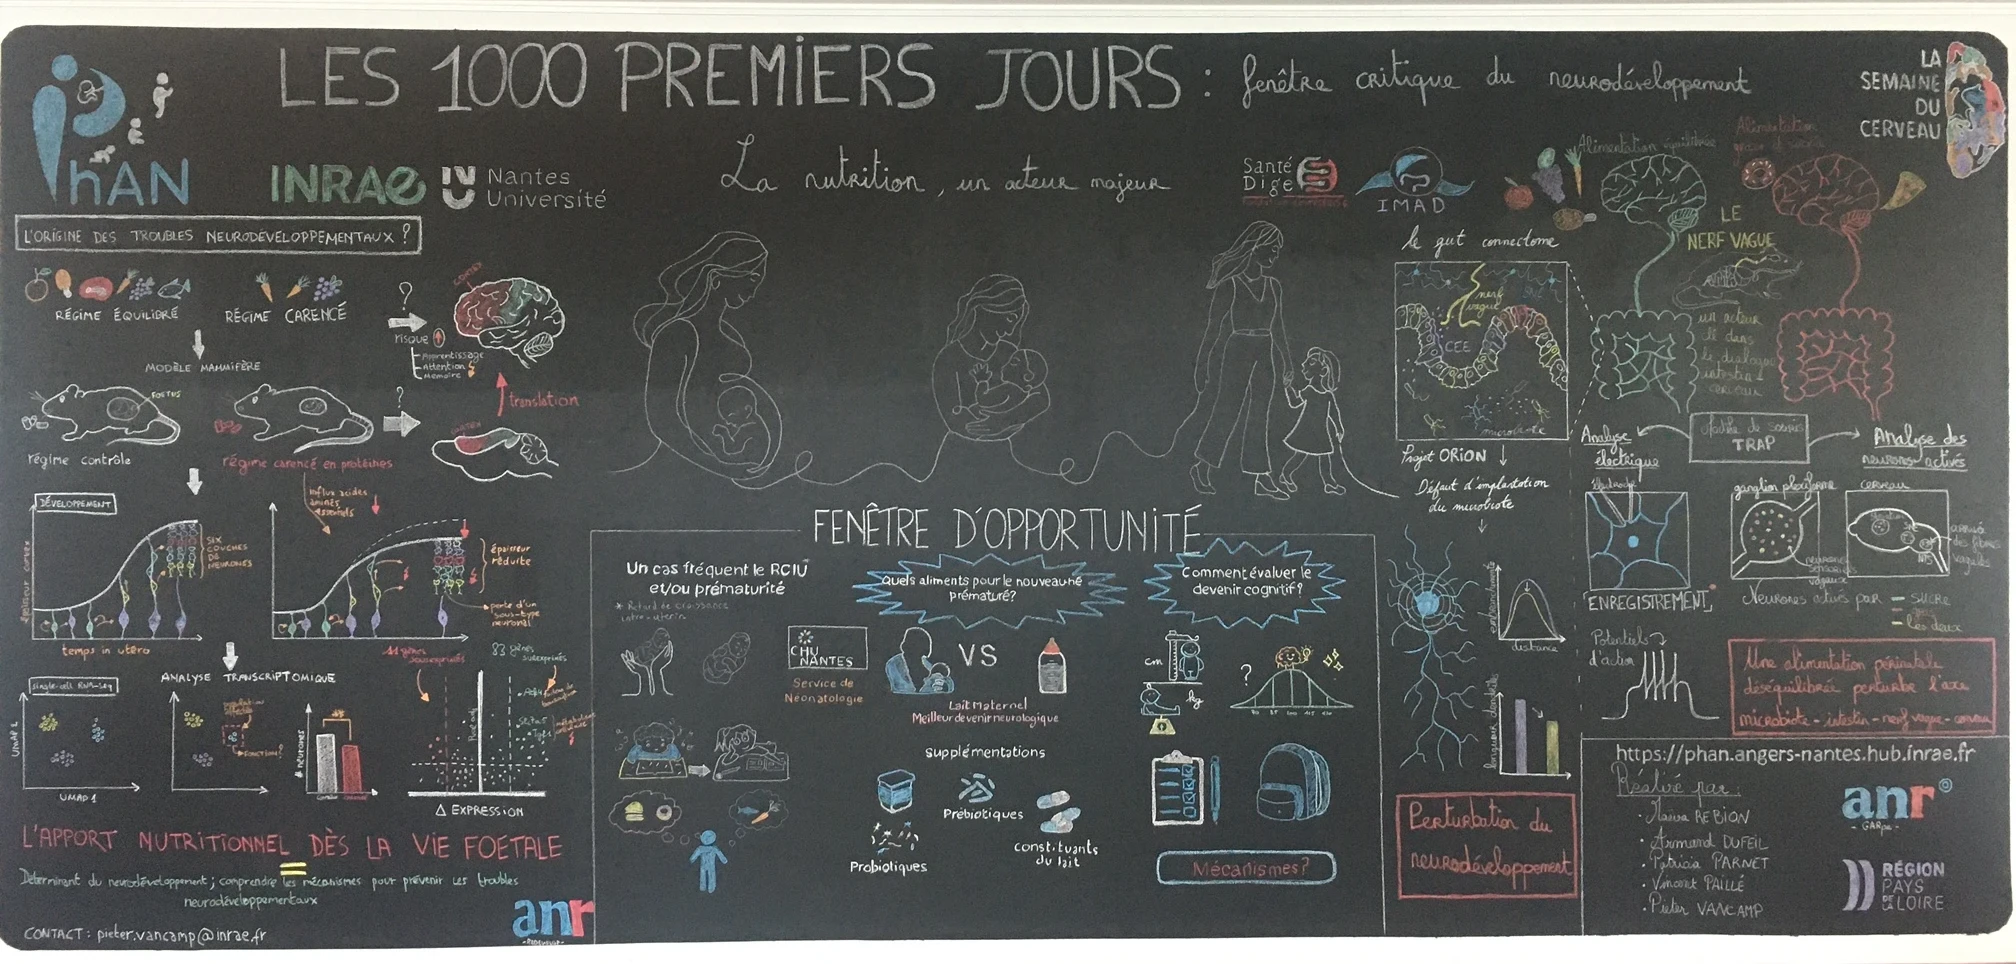 LES 1000 PREMIERS JOURS : fenêtre critique du neurodéveloppement
La nutrition, un acteur majeur
PhAN
INRAE
Nantes
Université
Santé
Dige
IMAD
LA
SEMAINE
DU
CERVEAU
L'ORIGINE DES TROUBLES NEURODÉVELOPPEMENTAUX ?
RÉGIME ÉQUILIBRÉ
RÉGIME CARENCÉ
?
risque
Apprentissage
Attention
Mémoire
CORTEX
MODÈLE MAMMIFÈRE
FOETUS
?
translation
CORTEX
régime contrôle
régime carencé en protéines
influx acides
aminés
essentiels
DÉVELOPPEMENT
épaisseur cortex
SIX
COUCHES
DE
NEURONES
temps in utero
épaisseur
réduite
perte d'un
sous-type
neuronal
ANALYSE TRANSCRIPTOMIQUE
single-cell RNA-seq
UMAP 1
FONCTION?
# neurones
11 gènes
sousexprimés
83 gènes
surexprimés
Δ EXPRESSION
L'APPORT NUTRITIONNEL DÈS LA VIE FOETALE
=
Déterminant du neurodéveloppement ; comprendre les mécanismes pour prévenir les troubles
neurodéveloppementaux
CONTACT : pieter.vancamp@inrae.fr
anr
FENÊTRE D'OPPORTUNITÉ
Un cas fréquent le RCIU
et/ou prématurité
* Retard de croissance
intra-utérin
CHU
NANTES
Service de
Néonatologie
Quels aliments pour le nouveau né
prématuré?
VS
Lait Maternel
Meilleur devenir neurologique
supplémentations
Prébiotiques
Probiotiques
constituants
du lait
Comment évaluer le
devenir cognitif?
cm
kg
?
Mécanismes?
le gut connectome
nerf
vague
CEE
microbiote
Projet ORION
Défaut d'implantation
du microbiote
distance
Perturbation du
neurodéveloppement
Alimentation équilibrée
Alimentation
LE
NERF VAGUE
un acteur
clé dans
le dialogue
intestin
cerveau
TRAP
Analyse
électrique
électrode
ENREGISTREMENT
Potentiels
d'action
Analyse des
neurones activés
ganglion plexiforme
neurones
sensoriels
vagaux
cerveau
arrivée
des fibres
vagales
NTS
Neurones activés par
SUCRE
gras
les deux
Une alimentation périnatale
déséquilibrée perturbe l'axe
microbiote - intestin - nerf vague - cerveau
https://phan.angers-nantes.hub.inrae.fr
Réalisé par :
REBION
• Armand DUFEIL
• Patricia PARNET
• Vincent PAILLÉ
• Pieter VANCAMP
anr
RÉGION
PAYS
DE LA
LOIRE